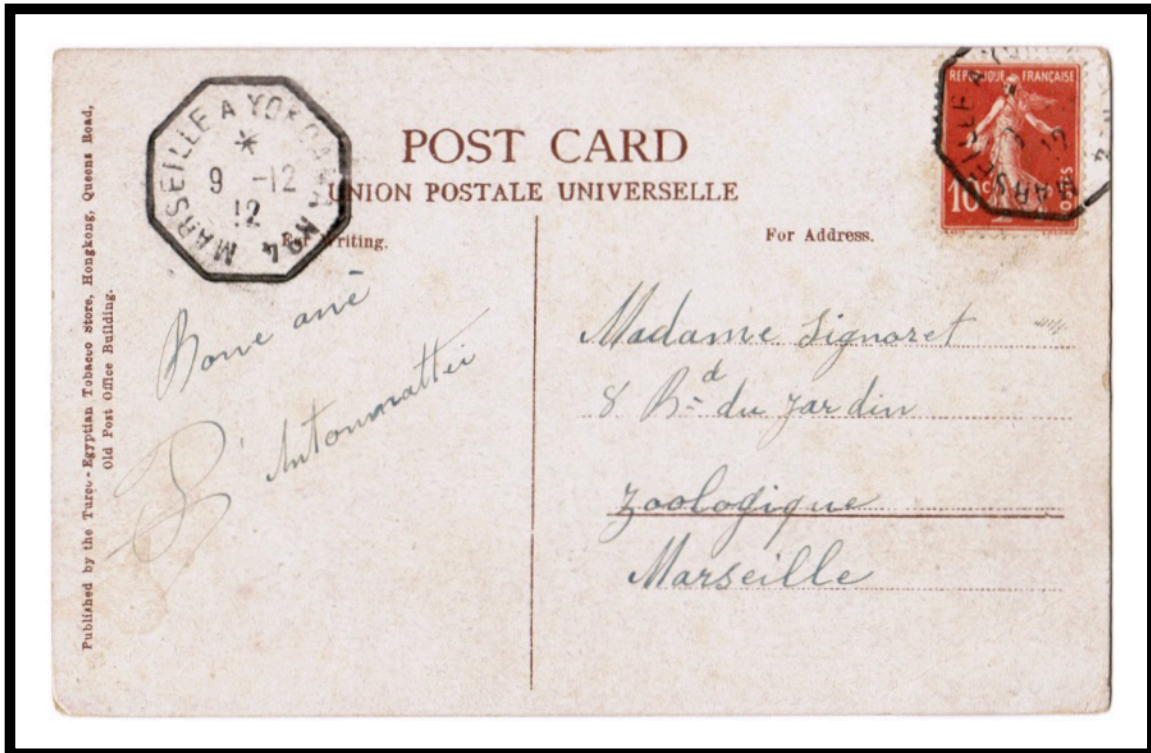 Published by the Turco-Egyptian Tobacco Store, Hongkong, Queens Road,
Old Post Office Building.
MARSEILLE A YOKOHAMA Nº 4
*
9 -12
12
POST CARD
UNION POSTALE UNIVERSELLE
For Writing.
For Address.
Bonne ané
Antonmattei
REPUBLIQUE FRANÇAISE
10 c POSTES
MARSEILLE A
Madame Signoret
8 Bd du Jardin
Zoologique
Marseille